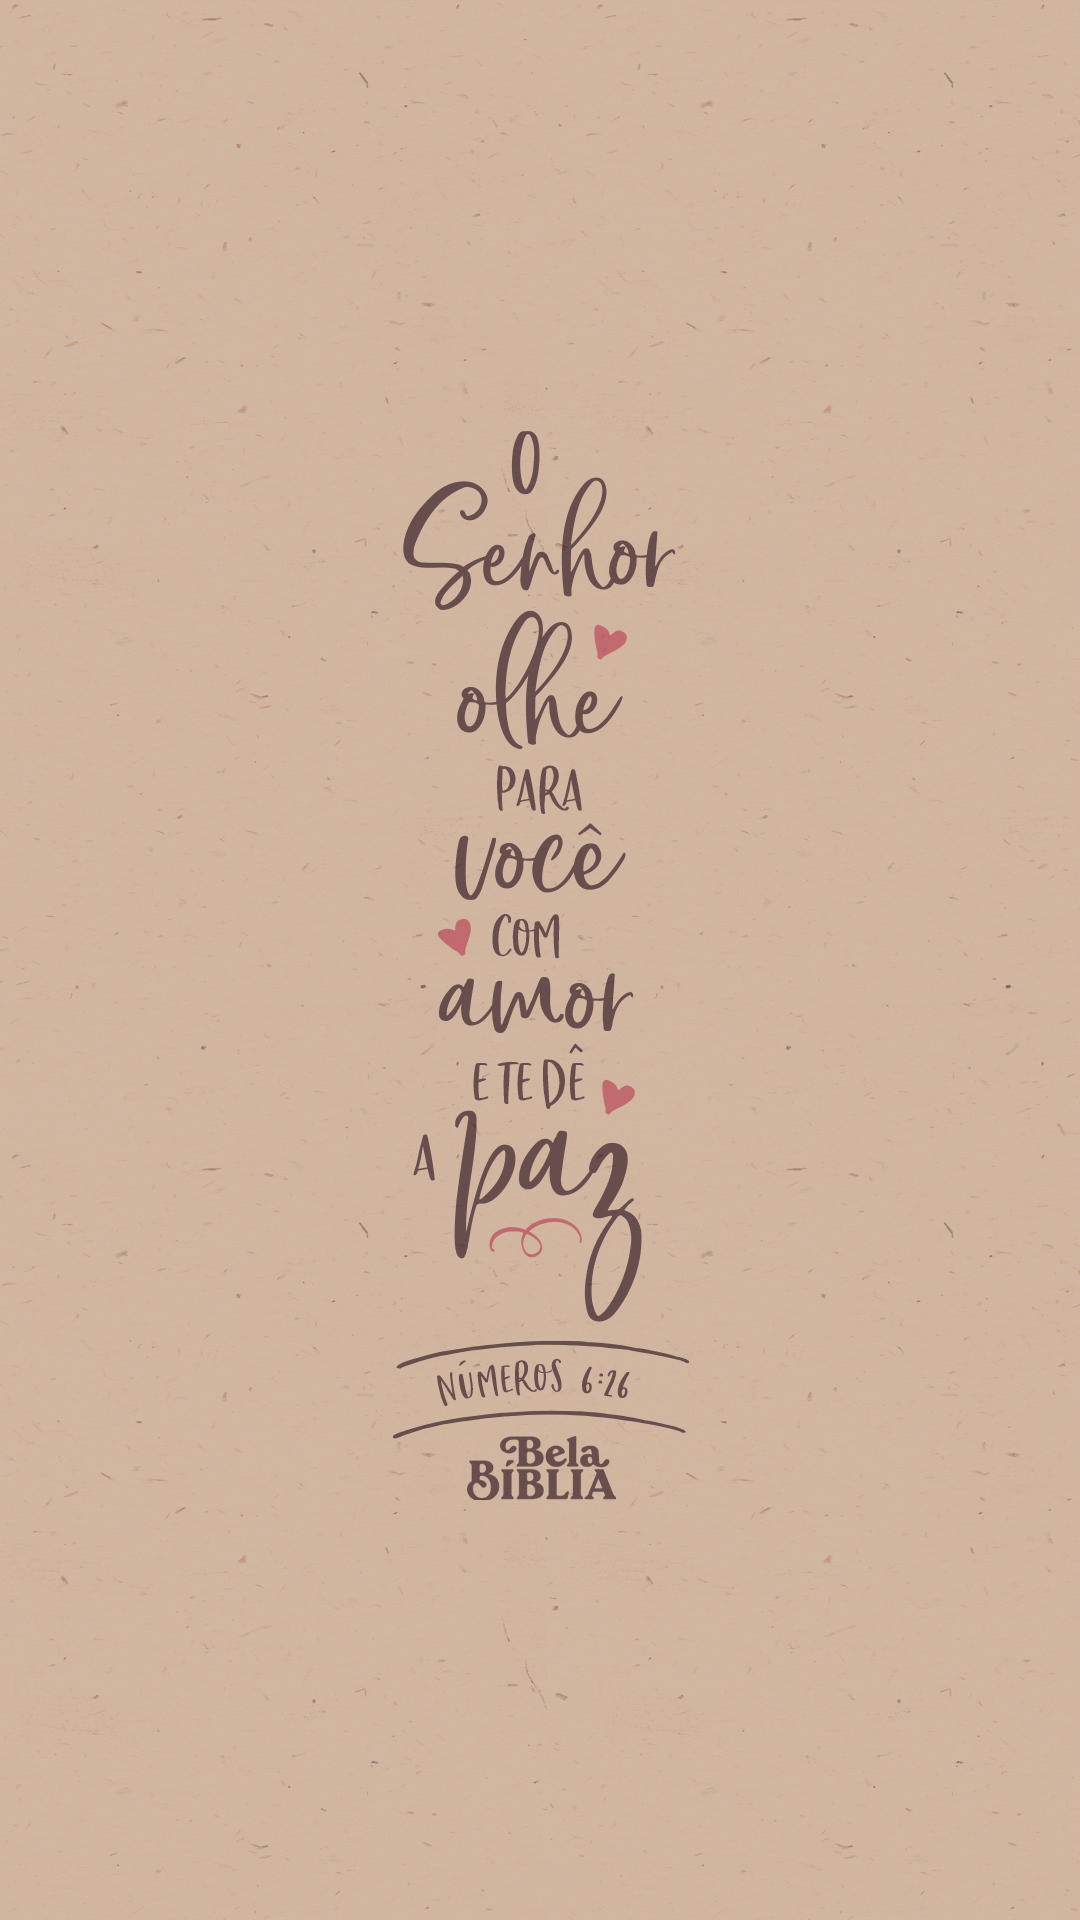 O
Senhor
olhe
PARA
você
COM
amor
E TE DÊ
A paz
NÚMEROS 6:26
Bela
BÍBLIA